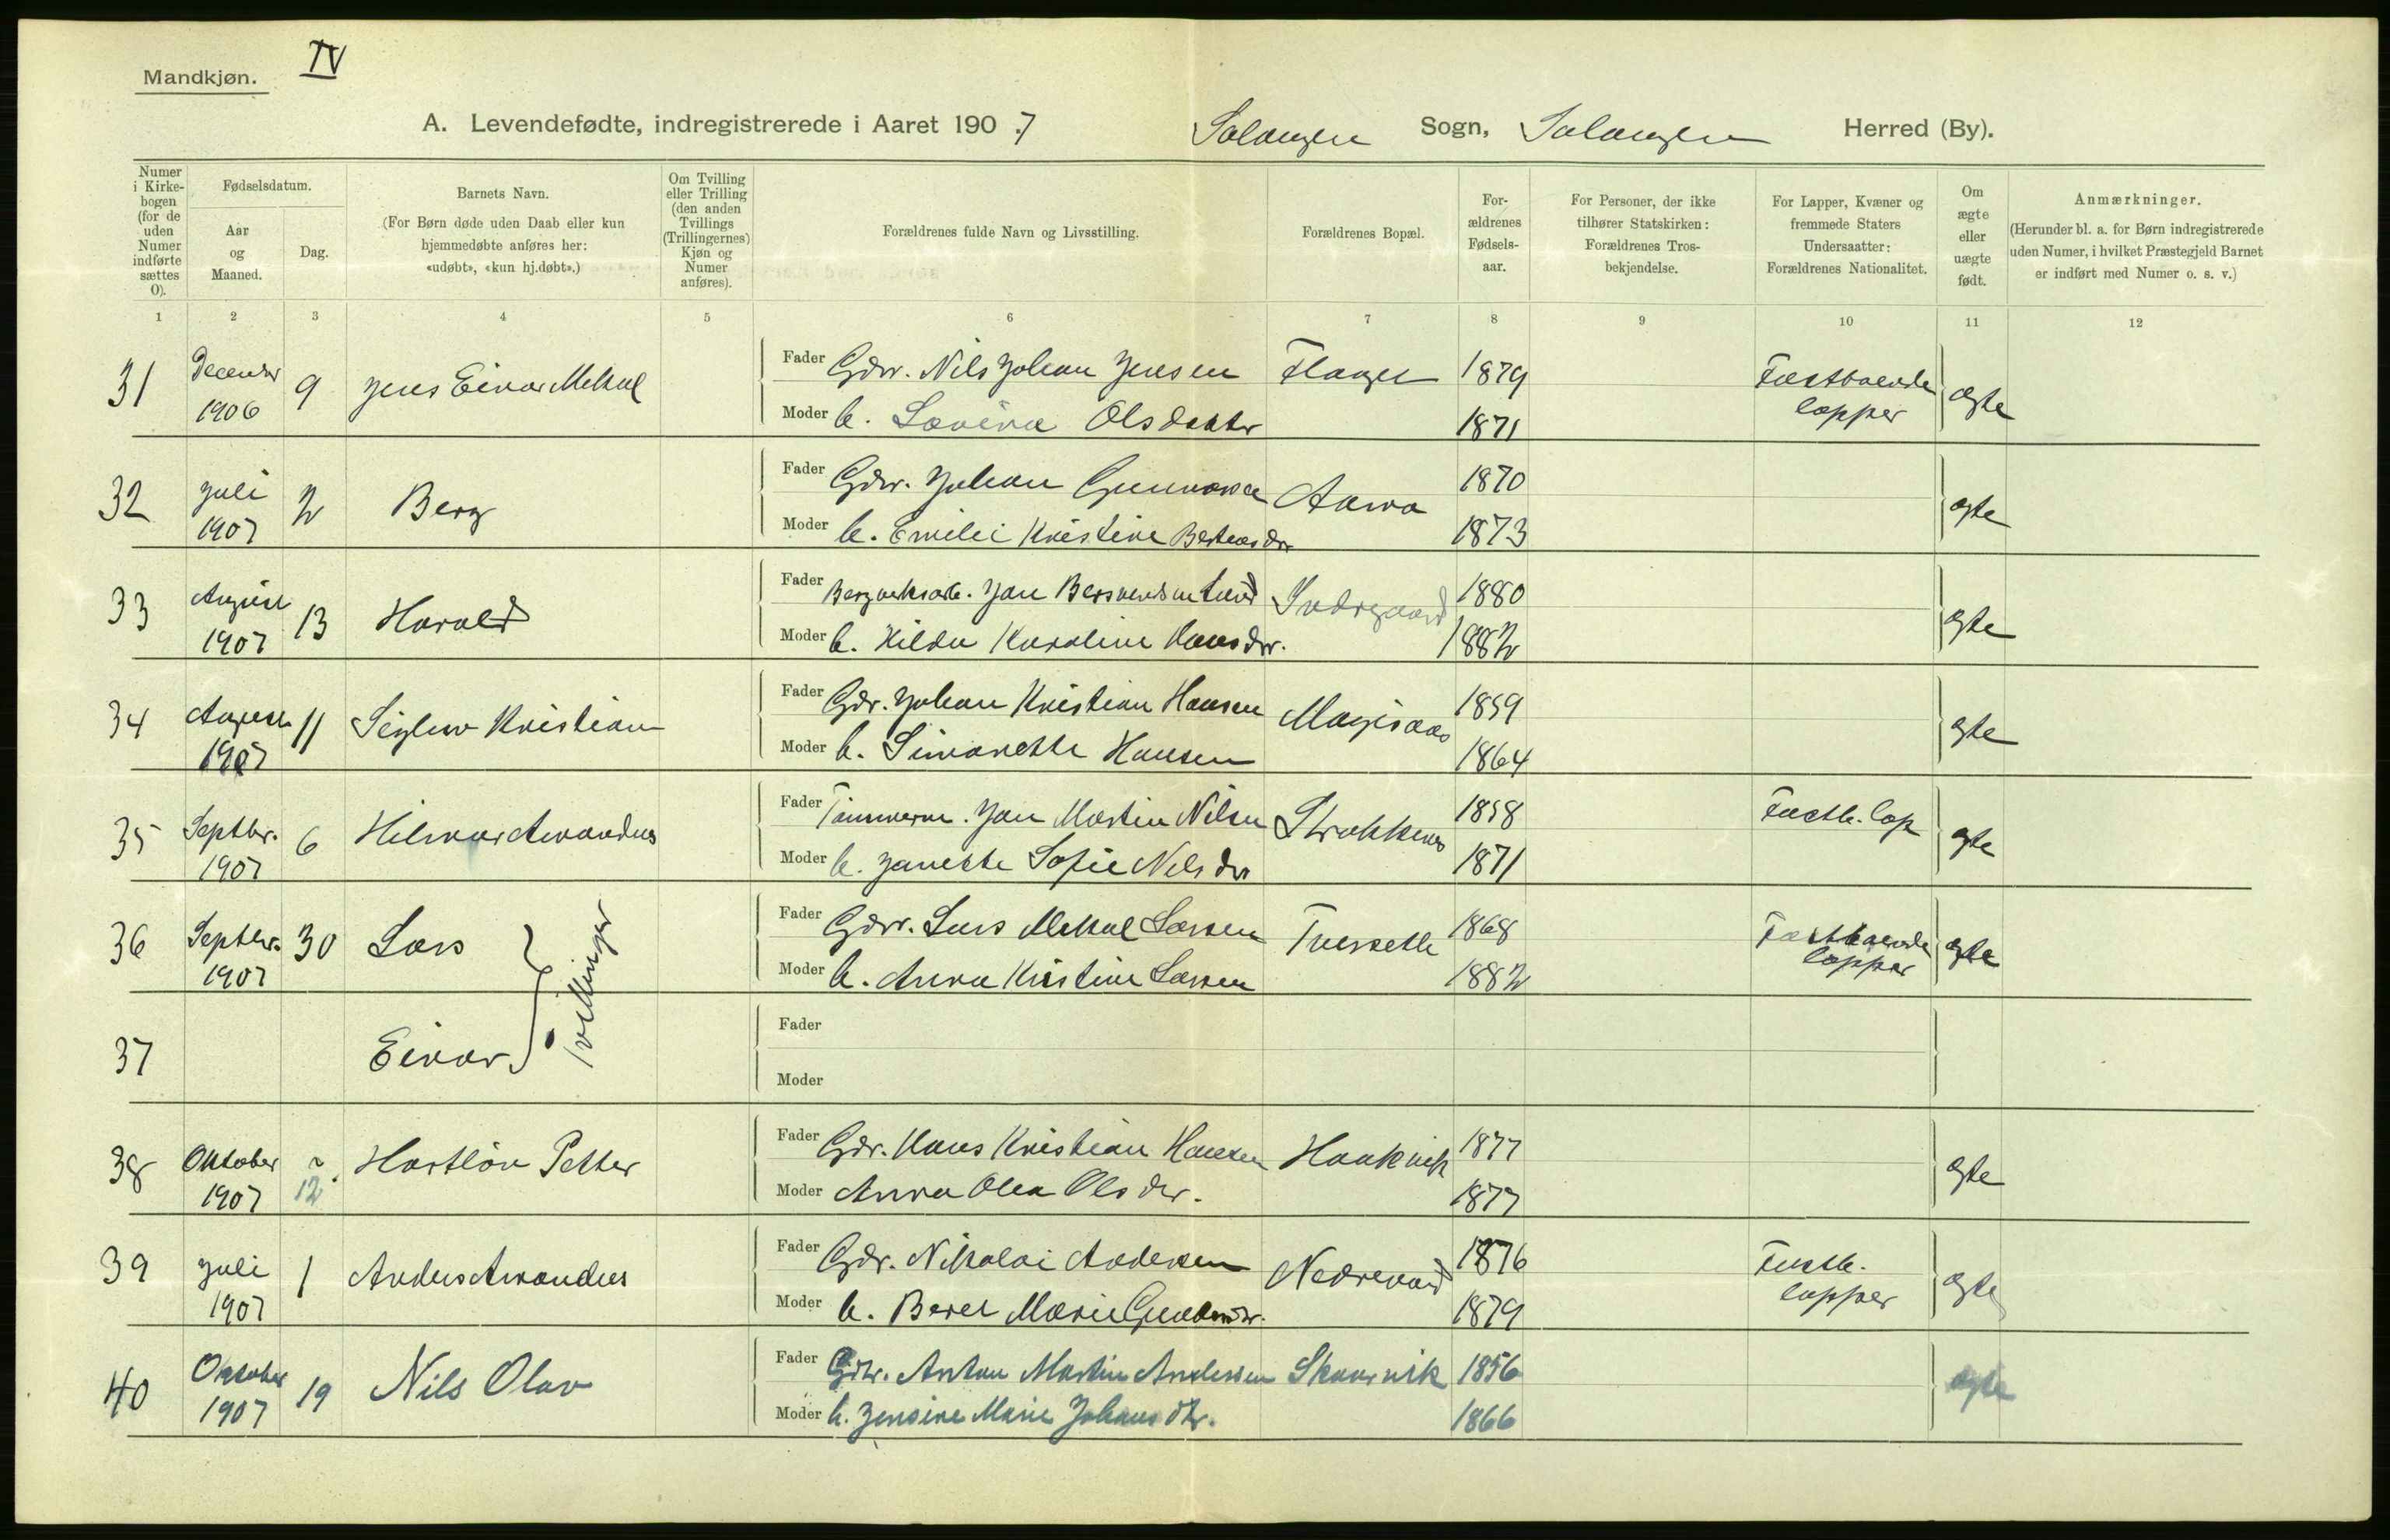 Mandkjøn.
IV
A. Levendefødte, indregistrerede i Aaret 1907 Salangen Sogn, Salangen Herred (By).
Numer i Kirkebogen (for de uden Numer indførte sættes 0).
Fødselsdatum.
Aar og Maaned.
Dag.
Barnets Navn.
(For Børn døde uden Daab eller kun hjemmedøbte anføres her: «udøbt», «kun hj.døbt».)
Om Tvilling eller Trilling (den anden Tvillings (Trillingernes) Kjøn og Numer anføres).
Forældrenes fulde Navn og Livsstilling.
Forældrenes Bopæl.
Forældrenes Fødselsaar.
For Personer, der ikke tilhører Statskirken: Forældrenes Trosbekjendelse.
For Lapper, Kvæner og fremmede Staters Undersaatter: Forældrenes Nationalitet.
Om ægte eller uægte født.
Anmærkninger.
(Herunder bl. a. for Børn indregistrerede uden Numer, i hvilket Præstegjeld Barnet er indført med Numer o. s. v.)
1 2 3 4 5 6 7 8 9 10 11 12
31 December 1906 9 Jens Einar Mekal
Fader Gdr. Nils Johan Jensen 1879 Fastboende lapper ægte
Moder h. Lovina Olsdatter 1871
32 Juli 1907 2 Berg
Fader Gdr. Johan 1870 ægte
Moder h. Emilie Kristine 1873
33 August 1907 13 Harald
Fader Jan 1880 ægte
Moder h. Hilda Karoline Hansdtr. 1882
34 August 1907 11 Kristian
Fader Gdr. Johan Kristian Hansen 1859 ægte
Moder h. Simonette Hansen 1864
35 Septbr. 1907 6 Hilmar Amandus
Fader Jan Martin Nilsen 1858 Fastb. lap ægte
Moder h. Janette Sofie Nilsdtr 1871
36 Septbr. 1907 30 Lars
Fader Gdr. Lars Mekal Larsen 1868 Fastboende lapper ægte
Moder h. Anna Kristine Larsen 1882
37 Einar
tvillinger
Fader
Moder
38 Oktober 1907 12 Petter
Fader Gdr. Hans Kristian Hansen 1877 ægte
Moder Anna Olea Olsdtr. 1877
39 Juli 1907 1 Anders Amandus
Fader Gdr. Nikolai Andersen 1876 Fastb. lapper ægte
Moder h. Beret Marie 1879
40 Oktober 1907 19 Nils Olav
Fader Gdr. Anton Martin Andersen Skaarvik 1856 ægte
Moder h. Jensine Marie Johansdtr. 1866